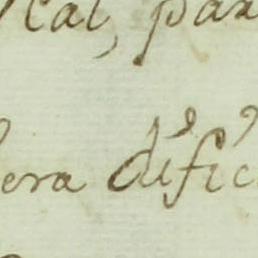 tal, par
era dific